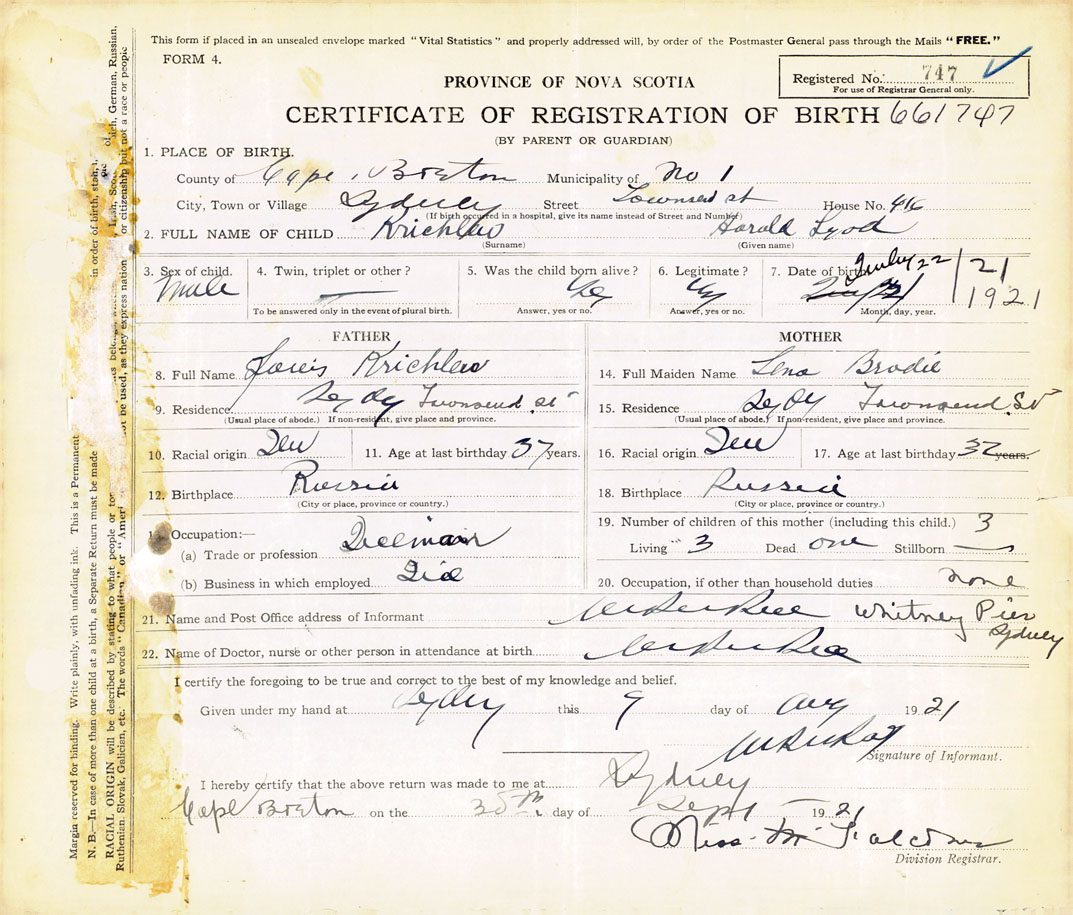 This form if placed in an unsealed envelope marked "Vital Statistics" and properly addressed will, by order of the Postmaster General pass through the Mails "FREE."
FORM 4.
Registered No. 747
For use of Registrar General only.
PROVINCE OF NOVA SCOTIA
CERTIFICATE OF REGISTRATION OF BIRTH 661747
(BY PARENT OR GUARDIAN)
1. PLACE OF BIRTH.
County of Cape Breton Municipality of No 1
City, Town or Village Sydney Street Townsend st House No. 416
(If birth occurred in a hospital, give its name instead of Street and Number)
2. FULL NAME OF CHILD Krichlew Harold Lyod
(Surname) (Given name)
3. Sex of child. 4. Twin, triplet or other? 5. Was the child born alive? 6. Legitimate? 7. Date of birth July 22/21
Male — Yes Yes 1921
To be answered only in the event of plural birth. Answer, yes or no. Answer, yes or no. Month, day, year.
FATHER
8. Full Name Krichlew
9. Residence Sydney Townsend st
(Usual place of abode.) If non-resident, give place and province.
10. Racial origin Jew 11. Age at last birthday 37 years.
12. Birthplace Russia
(City or place, province or country.)
Occupation:—
(a) Trade or profession
(b) Business in which employed
MOTHER
14. Full Maiden Name Lena Brodie
15. Residence Sydney Townsend St
(Usual place of abode.) If non-resident, give place and province.
16. Racial origin Jew 17. Age at last birthday 32 years.
18. Birthplace Russia
(City or place, province or country.)
19. Number of children of this mother (including this child.) 3
Living 3 Dead one Stillborn —
20. Occupation, if other than household duties none
21. Name and Post Office address of Informant Whitney Pier Sydney
22. Name of Doctor, nurse or other person in attendance at birth
I certify the foregoing to be true and correct to the best of my knowledge and belief.
Given under my hand at Sydney this 9 day of Aug 1921
Signature of Informant.
I hereby certify that the above return was made to me at Sydney
Cape Breton on the day of Sept 1921
Miss M
Division Registrar.
Margin reserved for binding. Write plainly, with unfading ink. This is a Permanent
N. B.—In case of more than one child at a birth, a Separate Return must be made in order of birth, stat
RACIAL ORIGIN will be described by stating to what people or
Ruthenian, Slovak, Galician, etc. The words "Canadian" or "Amer not be used, as they express nation or citizenship but not a race or people
German, Russian.